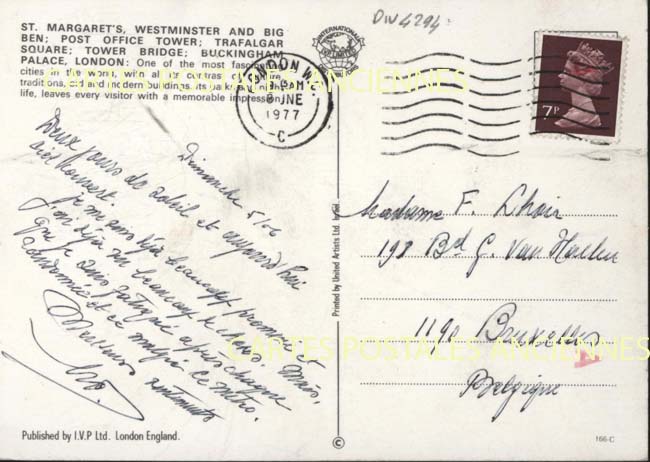 DIV 4294
ST. MARGARET'S, WESTMINSTER AND BIG
BEN; POST OFFICE TOWER; TRAFALGAR
SQUARE; TOWER BRIDGE; BUCKINGHAM
PALACE, LONDON: One of the most fascinating
cities in the world, with all its contrast of
traditions, old and modern buildings, its parks and
life, leaves every visitor with a memorable impression.
INTERNATIONAL
LONDON W.
PM
JNE
1977
C
7P
CARTES POSTALES ANCIENNES
Dimanche 5/06
Deux jours de soleil et aujourd'hui
ciel couvert.
Je m'suis déjà beaucoup promenée
j'en déjà vu beaucoup de choses. Mais,
que je suis fatiguée après chaque
randonnée et ce malgré ce métro.
Meilleurs
sentiments
Madame F.
198 Bd G. Van Haelen
1190 Bruxelles
Belgique
CARTES POSTALES ANCIENNES
Printed by United Artists Ltd. Israel
Published by I.V.P Ltd. London England.
©
166-C